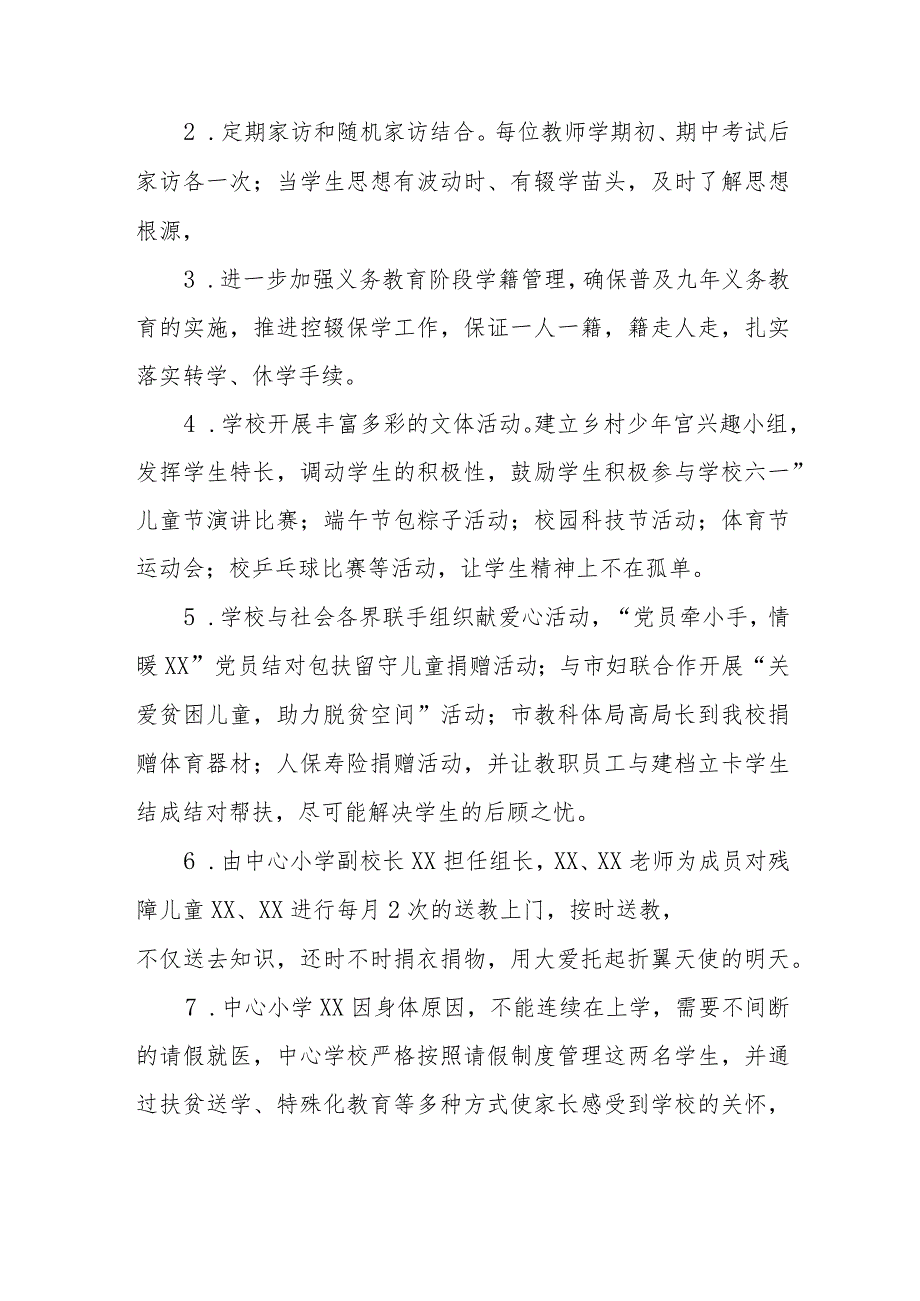 2 .定期家访和随机家访结合。每位教师学期初、期中考试后
家访各一次；当学生思想有波动时、有辍学苗头，及时了解思想
根源，
3 .进一步加强义务教育阶段学籍管理，确保普及九年义务教
育的实施，推进控辍保学工作，保证一人一籍，籍走人走，扎实
落实转学、休学手续。
4 .学校开展丰富多彩的文体活动。建立乡村少年宫兴趣小组，
发挥学生特长，调动学生的积极性，鼓励学生积极参与学校六一”
儿童节演讲比赛；端午节包粽子活动；校园科技节活动；体育节
运动会；校乒乓球比赛等活动，让学生精神上不在孤单。
5 .学校与社会各界联手组织献爱心活动，“党员牵小手，情
暖XX”党员结对包扶留守儿童捐赠活动；与市妇联合作开展“关
爱贫困儿童，助力脱贫空间”活动；市教科体局高局长到我校捐
赠体育器材；人保寿险捐赠活动，并让教职员工与建档立卡学生
结成结对帮扶，尽可能解决学生的后顾之忧。
6 .由中心小学副校长XX担任组长，XX、XX老师为成员对残
障儿童XX、XX进行每月2次的送教上门，按时送教，
不仅送去知识，还时不时捐衣捐物，用大爱托起折翼天使的明天。
7 .中心小学XX因身体原因，不能连续在上学，需要不间断
的请假就医，中心学校严格按照请假制度管理这两名学生，并通
过扶贫送学、特殊化教育等多种方式使家长感受到学校的关怀，